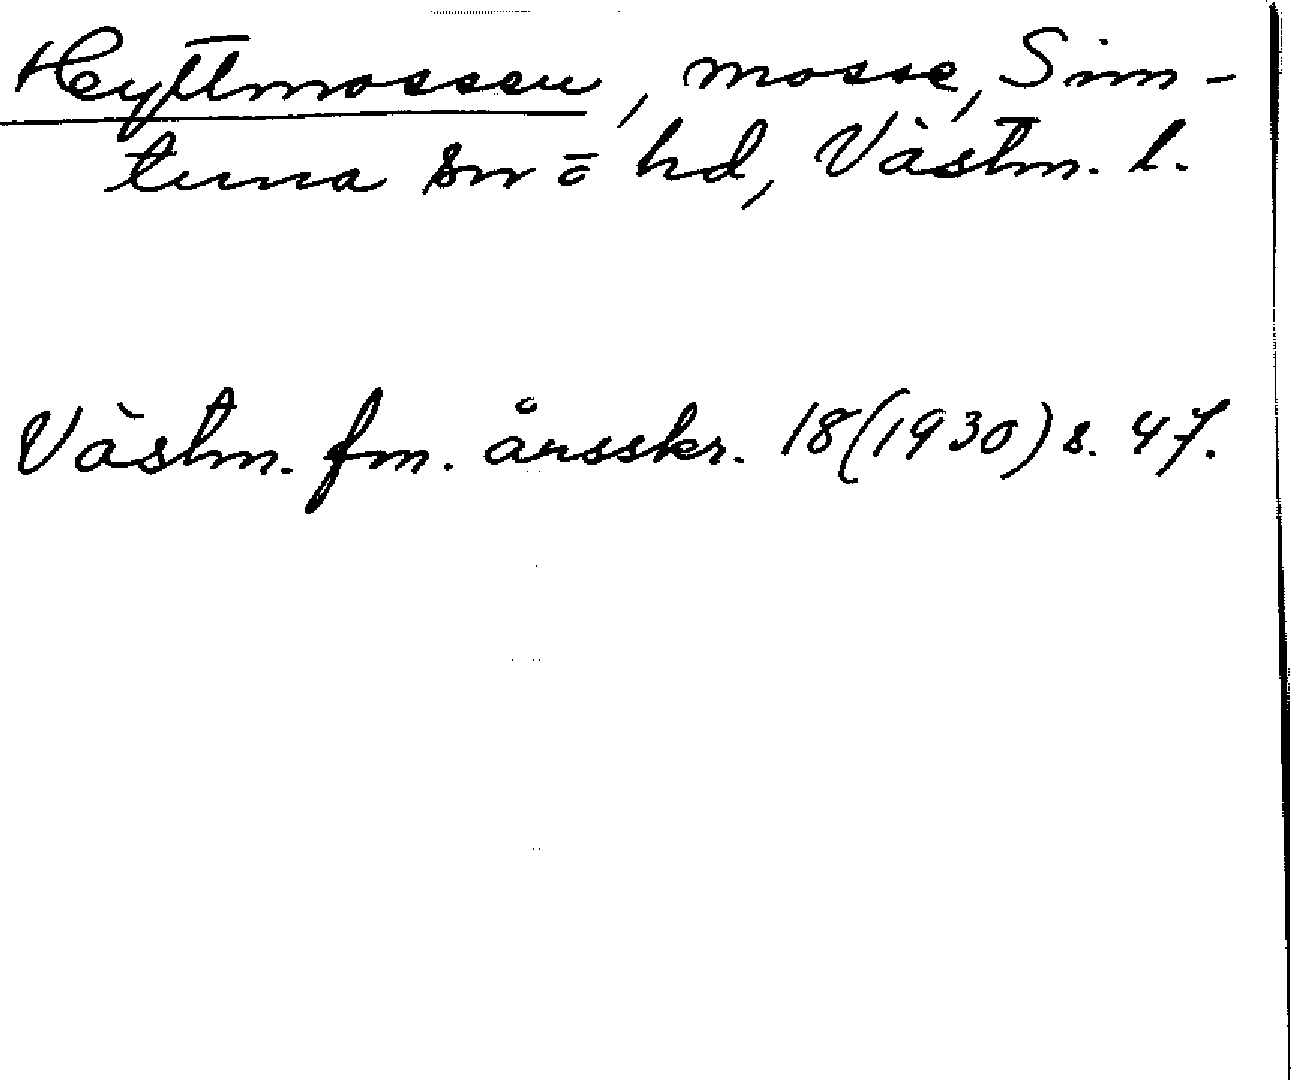 Hyttmossen, mosse, Sim-
tuna sn o hd, Västm. l.
Västm. fm. årsskr. 18(1930) s. 47.